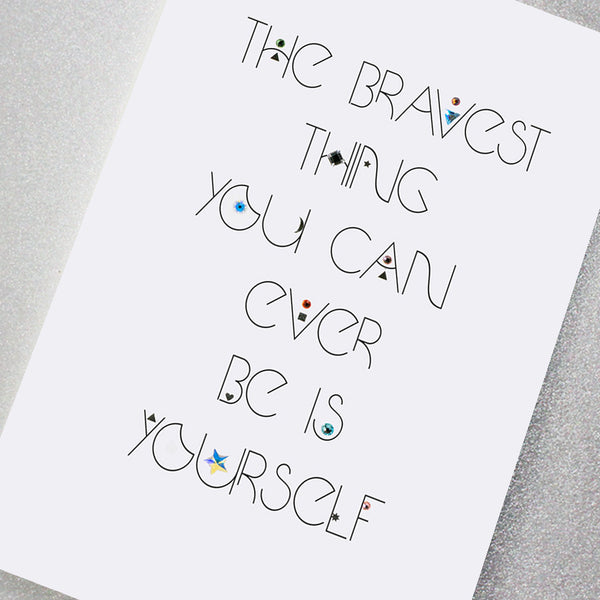 THE BRAVEST
THING
YOU CAN
EVER
BE IS
YOURSELF